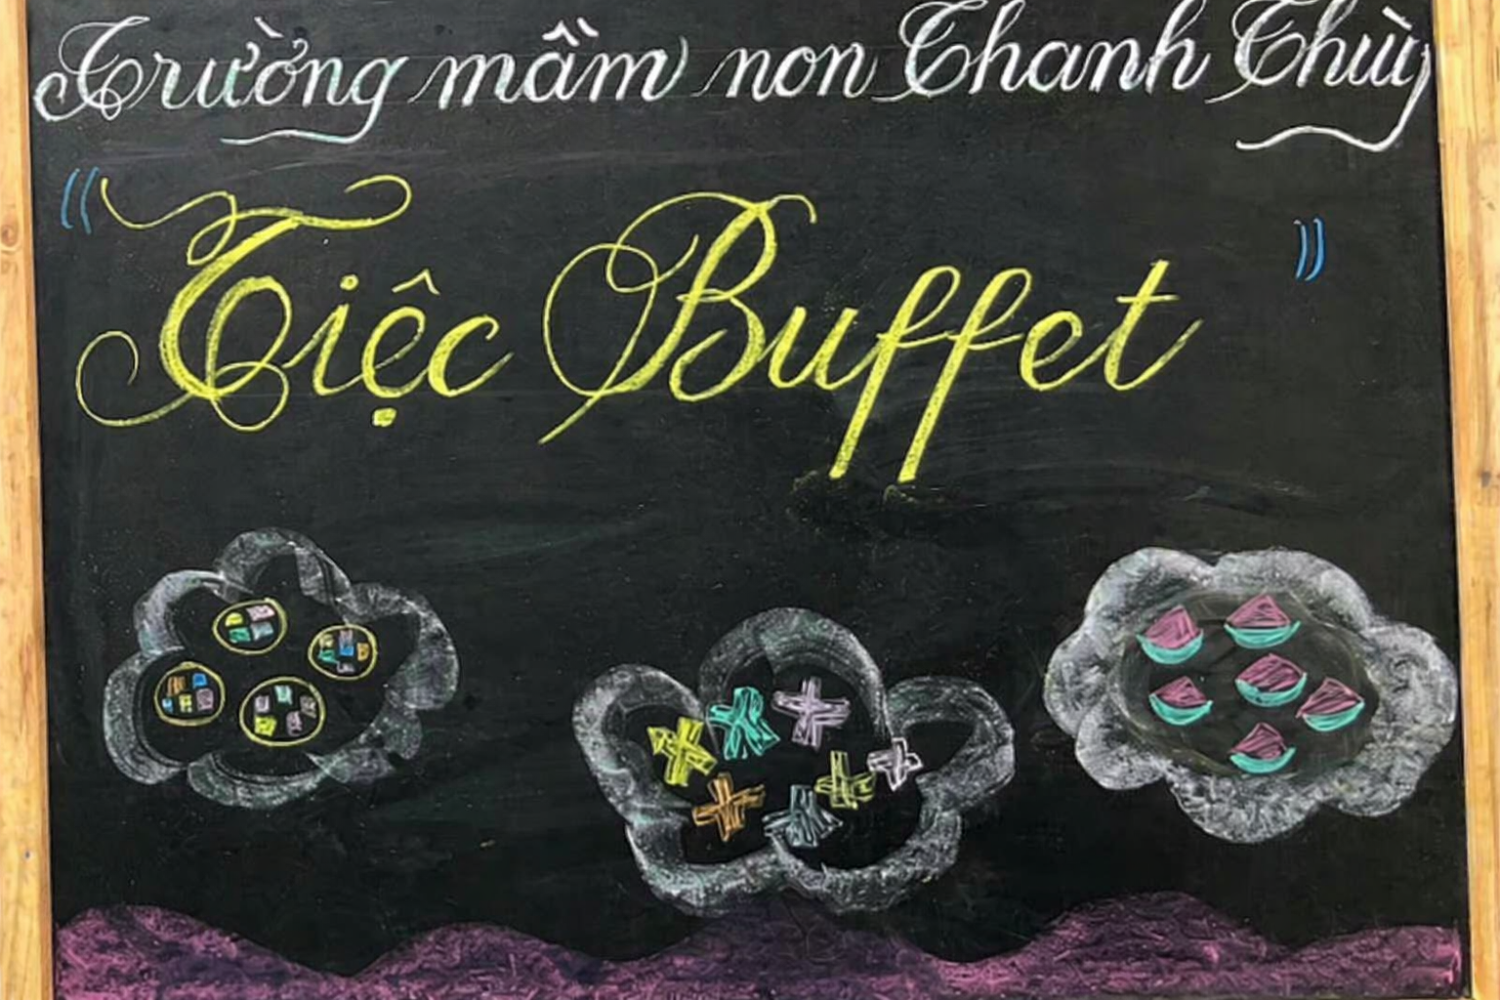 Trường mầm non Thanh Thùy
"Tiệc Buffet"